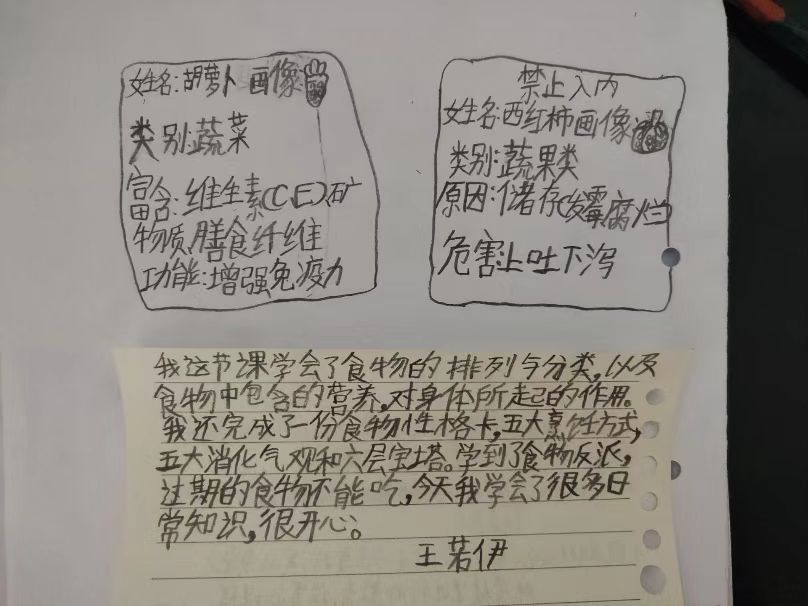 姓名:胡萝卜画像:
类别:蔬菜
富含:维生素(C,E),矿
物质,膳食纤维
功能:增强免疫力
禁止入内
姓名:西红柿画像:
类别:蔬果类
原因:储存发霉腐烂
危害:上吐下泻
我这节课学会了食物的排列与分类,以及
食物中包含的营养,对身体所起的作用。
我还完成了一份食物性格卡,五大烹饪方式,
五大消化气观和六层宝塔。学到了食物反派,
过期的食物不能吃,今天我学会了很多日
常知识,很开心。
王若伊